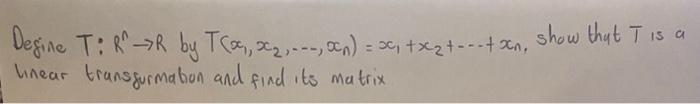 Define T: Rⁿ→R by T(x₁, x₂, ---, xₙ) = x₁ + x₂ + --- + xₙ, show that T is a
linear transformation and find its matrix